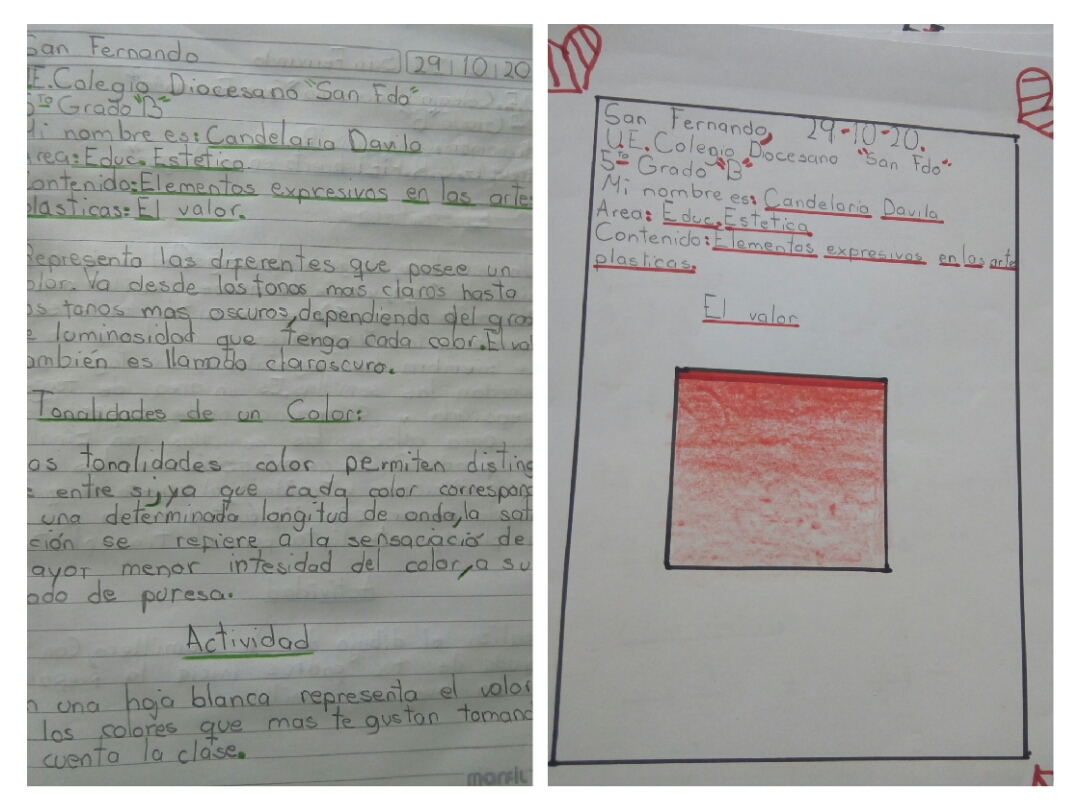 San Fernando 29 10 20
U.E. Colegio Diocesano "San Fdo"
5to Grado "B"
Mi nombre es: Candelaria Davila
Area: Educ. Estetica
Contenido: Elementos expresivos en las arte
plasticas: El valor.
Representa las diferentes que posee un
color. Va desde los tonos mas claros hasta
los tonos mas oscuros, dependiendo del grado
de luminosidad que tenga cada color. El val
también es llamado claroscuro.
Tonalidades de un Color:
Las tonalidades color permiten disting
entre si, ya que cada color correspon
una determinada longitud de onda, la sat
ción se repiere a la sensaciació de
mayor menor intesidad del color, a su
ado de puresa.
Actividad
En una hoja blanca representa el valor
los colores que mas te gustan tomand
cuenta la clase.
marfil
San Fernando, 29-10-20.
U.E. Colegio Diocesano "San Fdo"
5to Grado "B"
Mi nombre es: Candelaria Davila
Area: Educ. Estetica
Contenido: Elementos expresivos en las arte
plasticas.
El valor